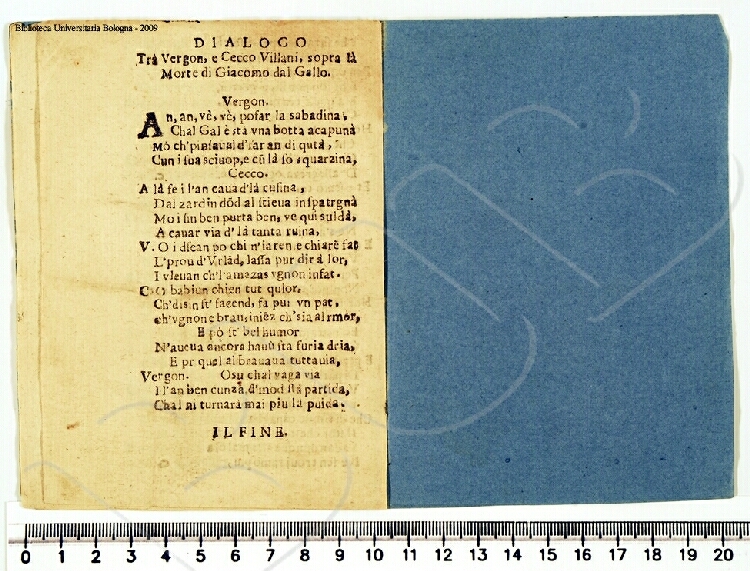 Biblioteca Universitaria Bologna - 2009
DIALOGO
Trà Vergon, e Cecco Villani, sopra la
Morte di Giacomo dal Gallo.
Vergon.
An, an, vè, vè, posar la sabadina,
Chal Gal è stà vna botta acapunà
Mò ch'pinsaual d'far an di qutà,
Cun i sua sciuop, e cū là so squarzina,
Cecco.
A là fe i l'an caua d'là cusina,
Dal zardin dōd al steua
Mo i sin ben purta ben, ve qui suldà,
A cauar via d'là tanta ruina,
V. O i dsean po chi n'la ren e chiarè
L'prou d'Vrlàd, lassa pur dir à lor,
I vleuan ch'l'amazas vgnon insat.
C. O babiun chien tut quior,
Ch'disn st' fazend, fa pur vn pat,
ch'vgnon e brau, ch'sia al rmor,
E pò st' bel humor
N'aueua ancora hauù sta furia dria,
E pr qual al brauaua tuttauia,
Vergon. Osu chal vaga via
I l'an ben cunzà, d'mod stà partida,
Chal ni turnarà mai piu là puida.
IL FINE.
0 1 2 3 4 5 6 7 8 9 10 11 12 13 14 15 16 17 18 19 20